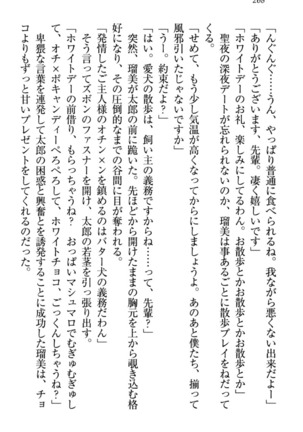 「んぐんぐ……うん、やっぱり普通に食べられるね。我ながら悪くない出来だよー」
「ありがとうございます、先輩。凄く嬉しいです」
「ホワイトデーのお礼、楽しみにしてるわん。お散歩とかお散歩とかお散歩とか」
聖夜の深夜デートが忘れられないのか、瑠美は事あるごとに散歩プレイをねだって
くる。
「せめて、もう少し気温が高くなってからにしましょうよ。あのあと僕たち、揃って
風邪引いたじゃないですか」
「うー。約束だよ？」
「はい。愛犬の散歩は、飼い主の義務ですからね……って、先輩？」
突然、瑠美が太郎の前に跪いた。先ほどから開けたままの胸元を上から覗き込む格
好になり、その圧倒的なまでの谷間に目が奪われる。
「発情したご主人様のオチン×ンを鎮めるのはバター犬の義務だわん」
そう言ってズボンのファスナーを開け、太郎の若茎を引っ張り出す。
「ホワイトデーの前借り、もらっちゃうね？　おっぱいマシュマロでむぎゅむぎゅし
て、オチ×ポキャンディーぺろぺろして、ホワイトチョコ、ごっくんしちゃうね？」
卑猥な言葉を連発して太郎の困惑と興奮とを誘発することに成功した瑠美は、チョ
コよりもずっと甘いプレゼントをしてくれるのだった。